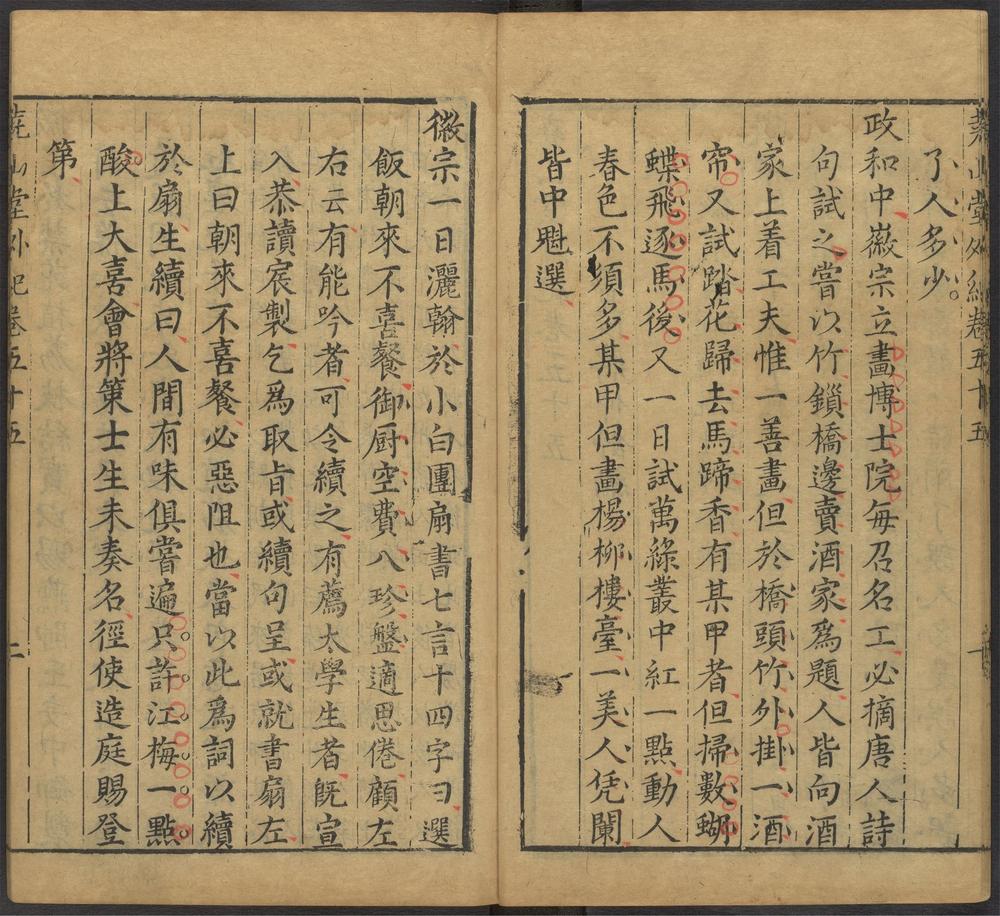 堯山堂外紀卷五十五
了人多少
政和中徽宗立畫博士院每召名工必摘唐人詩
句試之嘗以竹鎖橋邊賣酒家爲題人皆向酒
家上着工夫惟一善畫但於橋頭竹外掛一酒
帘又試踏花歸去馬蹄香有某甲者但掃數蝴
蝶飛逐馬後又一日試萬綠叢中紅一點動人
春色不須多某甲但畫楊柳樓臺一美人凭闌
皆中魁選
徽宗一日灑翰於小白團扇書七言十四字曰選
飯朝來不喜餐御厨空費八珍盤適思倦顧左
右云有能吟者可令續之有薦太學生者旣宣
入恭讀宸製乞爲取旨或續句呈或就書扇左
上曰朝來不喜餐必惡阻也當以此爲詞以續
於扇生續曰人間有味俱嘗遍只許江梅一點
酸上大喜會將策士生未奏名徑使造庭賜登
第
堯山堂外紀卷五十五 二